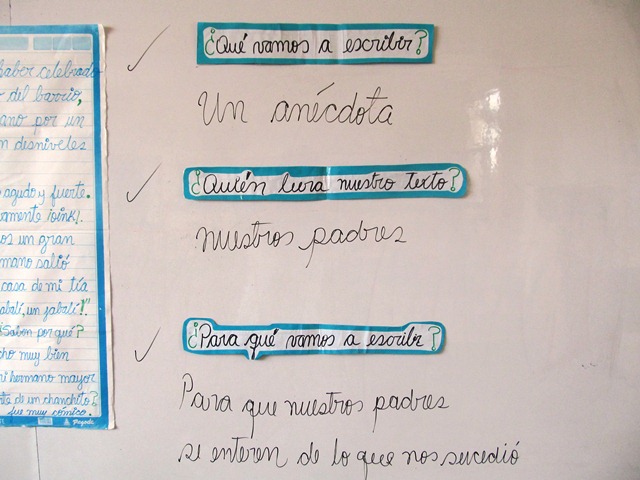 haber celebrado
del barrio,
ano por un
n desniveles
agudo y fuerte.
vamente ¡oink!.
os un gran
mano salió
casa de mi tía
abalí, un jabalí!"
¿Saben por qué?
cho muy bien
mi hermano mayor
te de un chanchito?
fue muy cómico.
¿Qué vamos a escribir?
Un anécdota
¿Quién leerá nuestro texto?
nuestros padres
¿Para qué vamos a escribir?
Para que nuestros padres
se enteren de lo que nos sucedió